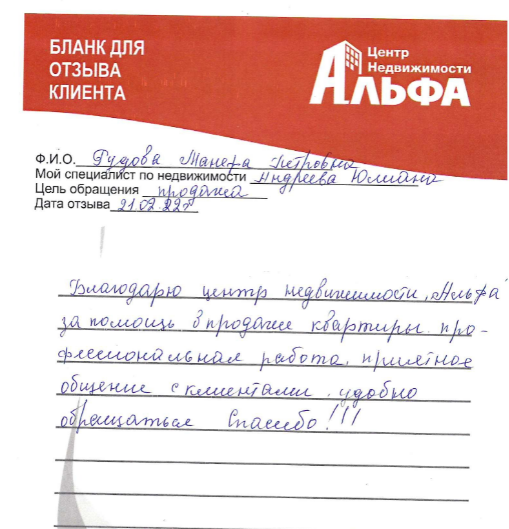 БЛАНК ДЛЯ
ОТЗЫВА
КЛИЕНТА
Центр
Недвижимости
АЛЬФА
Ф.И.О. Гудова Манера Петровна
Мой специалист по недвижимости Андреева Юлиана
Цель обращения продажа
Дата отзыва 21.02.22г
Благодарю центр недвижимости „Альфа"
за помощь в продаже квартиры. про-
фессиональная работа, приятное
общение с клиентами, удобно
обращаться Спасибо!!!